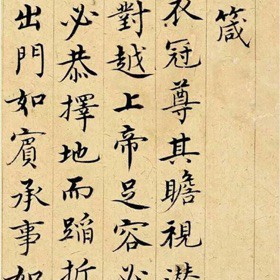 箴
衣冠尊其瞻視潛
對越上帝足容必
必恭擇地而蹈折
出門如賓承事如